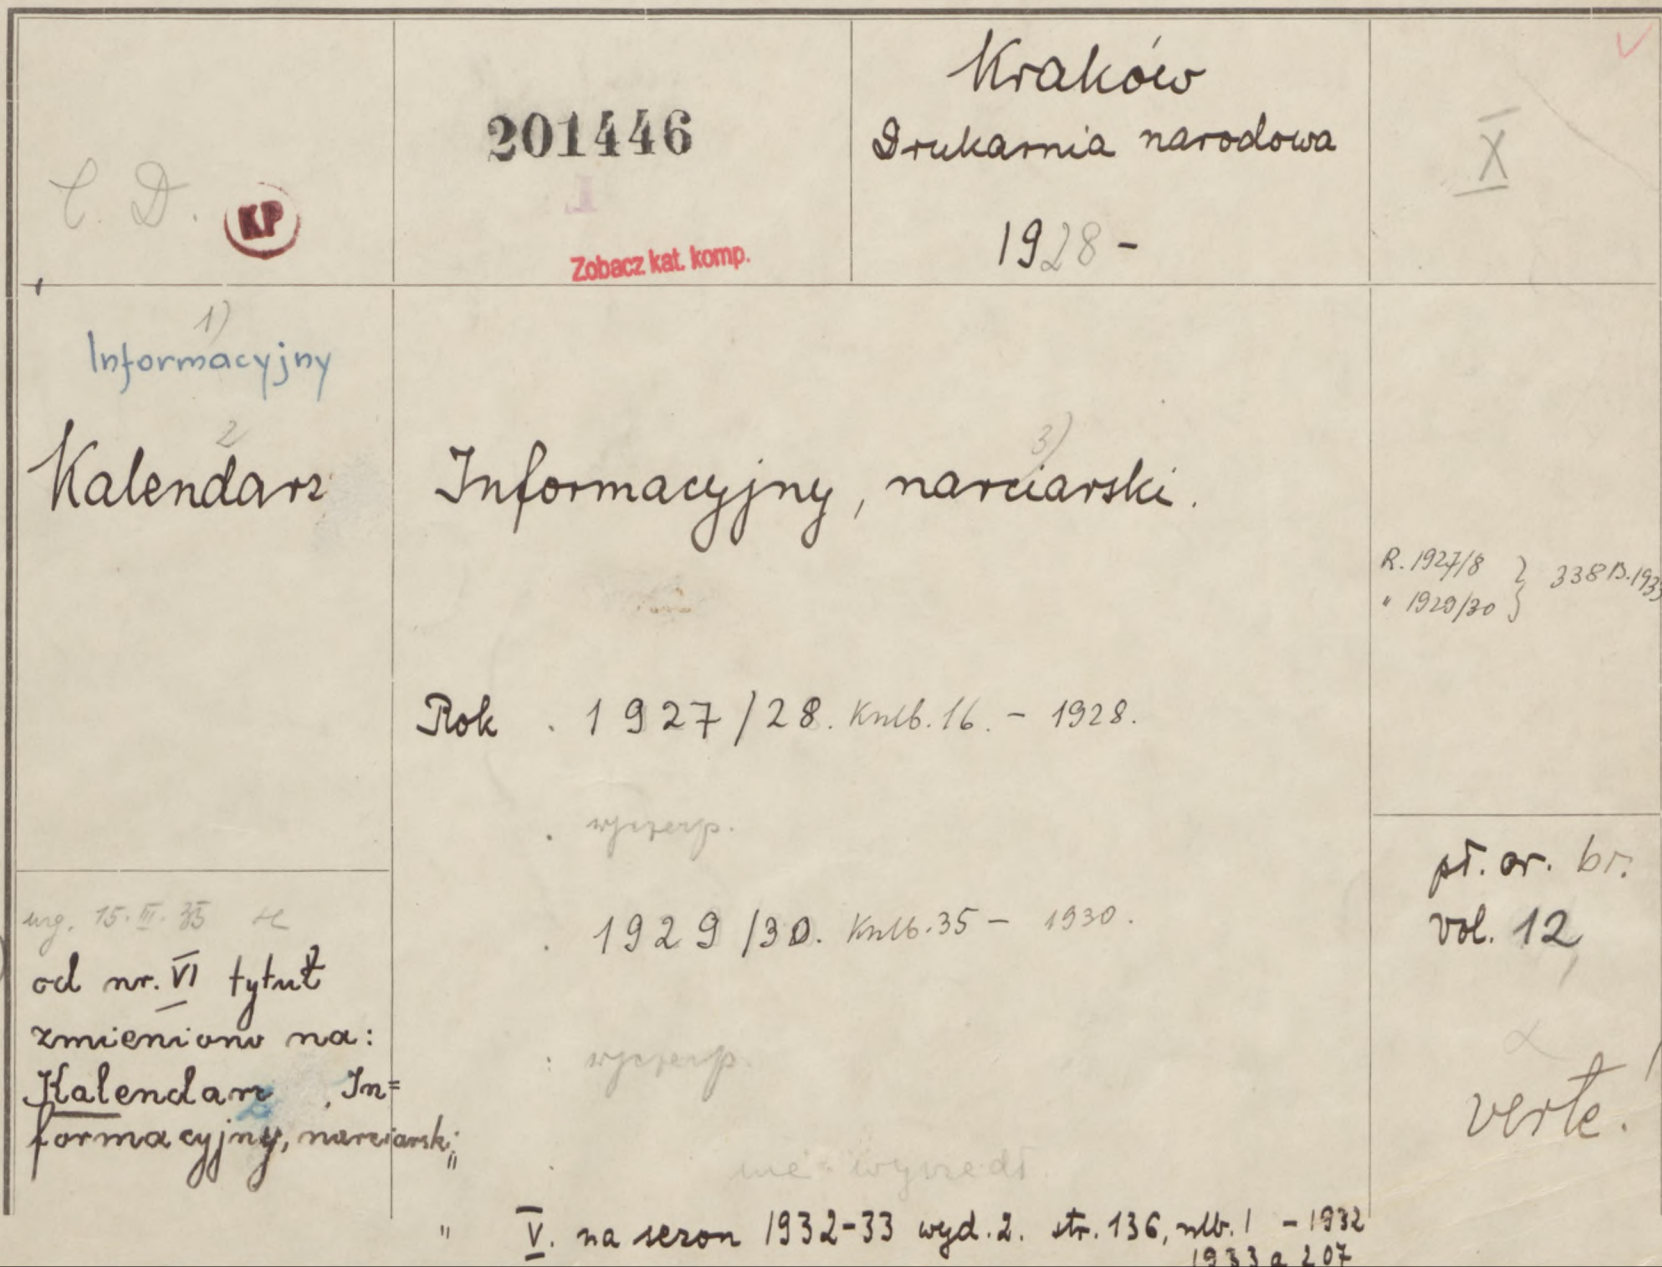 C. D.
KP
201446
I
Zobacz kat. komp.
Kraków
Drukarnia narodowa
1928 -
X
1)
Informacyjny
2
Kalendarz
3)
Informacyjny, narciarski.
R. 1927/8 }
" 1929/30 } 338
Rok . 1927/28. Knlb. 16. - 1928.
. wyczerp.
. 1929/30. Knlb. 35 - 1930.
: wyczerp.
nie wyszedł
" V. na sezon 1932-33 wyd. 2. str. 136, nlb. 1 - 1932
1933 a 207
15. III. 35
od nr. VI tytuł
zmieniono na:
Kalendarz In=
formacyjny, narciarski;
pł. or. br.
vol. 12
verte!